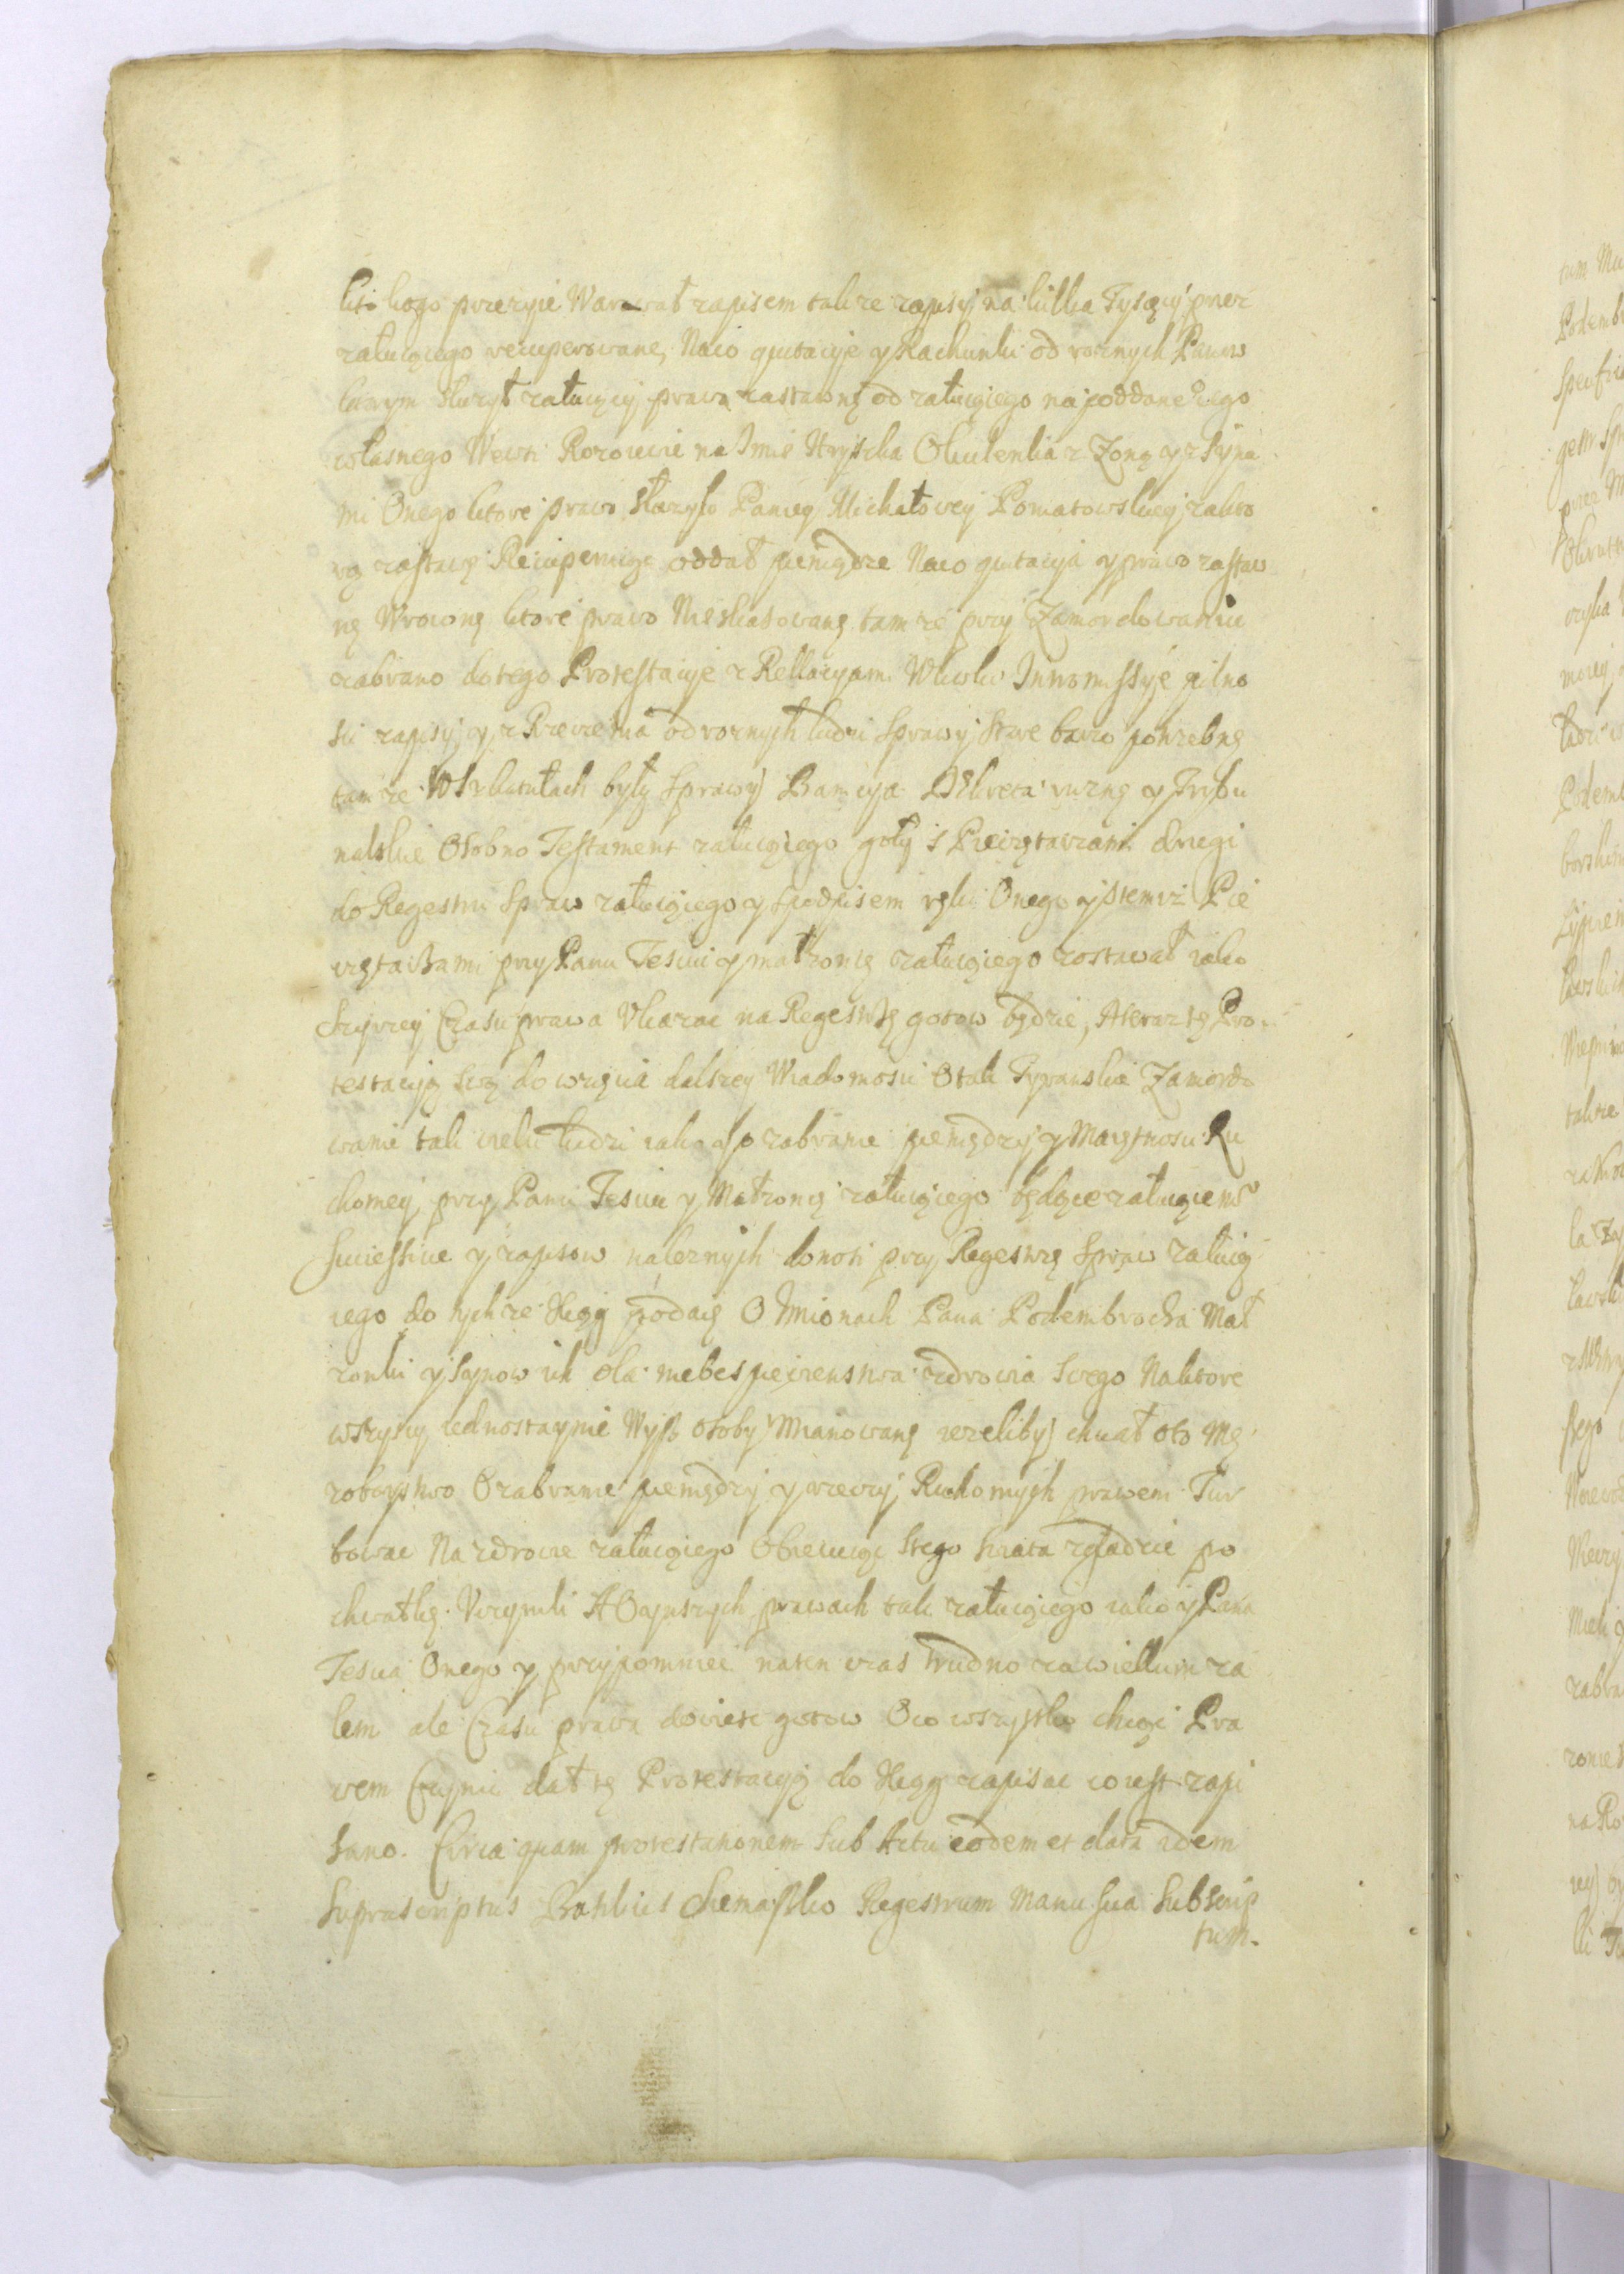 kto kogo przezyie Warował zapisem takze zapisy na kilka Tysięcy przez
załuiącego recuperowane, Naco quitacyie y Rachunki od roznych Panow
ktorym słuzył załuiący prawa zastawnę od załuiącego na poddanego
własnego Wewsi Rozowcie na Imie Hryszka Okulenka z Zoną y z Syna
mi Onego ktore prawo słuzyło Paniey Michałowey Poniatowskiey zakto
rą zastawę Recuperuiąc oddał pieniądze Naco quitacyia y prawo zastaw
nę Wrocono ktore prawo Nieskasowanę tamze przy Zamordowaniu
zabrano dotego Protestacyie z Rellacyami Wkilku Intromissyie pilno
sci zapisy y z Rzeczenia odroznych ludzi Sprawy Stare barzo potrzebnę
tamze WSzkatułach były Sprawy Banicya Dekreta ruznę y Trybu
nalskie Osobno Testament załuiącego goły s Pieczętarzami drugi
do Regestru Spraw załuiącego y spodpisem ręki Onego y stemiz Pie
czętarzami przy Panu Tesciu y małzonię załuiącego zostawał iako
Szyrzey Czasu prawa Ukazac na Regestrę gotow będzie, Ateraz tę Pro
testacyią swą dowzięcia dalszey Wiadomosci Otak Tyranskie Zamordo
wanie tak wielu ludzi iako y o zabranie pieniędzy y Maiętnosci Ru
chomey przy Panu Tesciu y Małzonię załuiącego będące załuiącemu
Successive y zapisow naleznych donosi przy Regestrę Spraw załuią
cego do tychze Xiąg podaię O Imionach Pana Podembrocka Mał
zonki y Synow ich dla niebespieczenstwa zdrowia Swego Naktore
wszyscy iednostaynie Wysz osoby Mianowanę iezeliby chciał oto Mę
zoboystwo Ozabranie pieniędzy y rzeczy Ruchomych prawem Tur
bowac Nazdrowie załuiącego Obiecuiąc stego swiata zgładzic po
chwałkę Uczynili A Oaynszych prawach tak załuiącego iako y Pana
Tescia Onego y przypomniec naten czas trudno zawielkim za
lem ale Czasu prawa dowiesc gotow Oco wszystko chcąc Pra
wem Czynic dał tę Protestacyią do Xiąg zapisac co iest zapi
sano. Circa quam protestationem Sub Actu eodem et data idem
Suprascriptus Basilius Siemaszko Regestrum Manu sua Subscrip
tum.